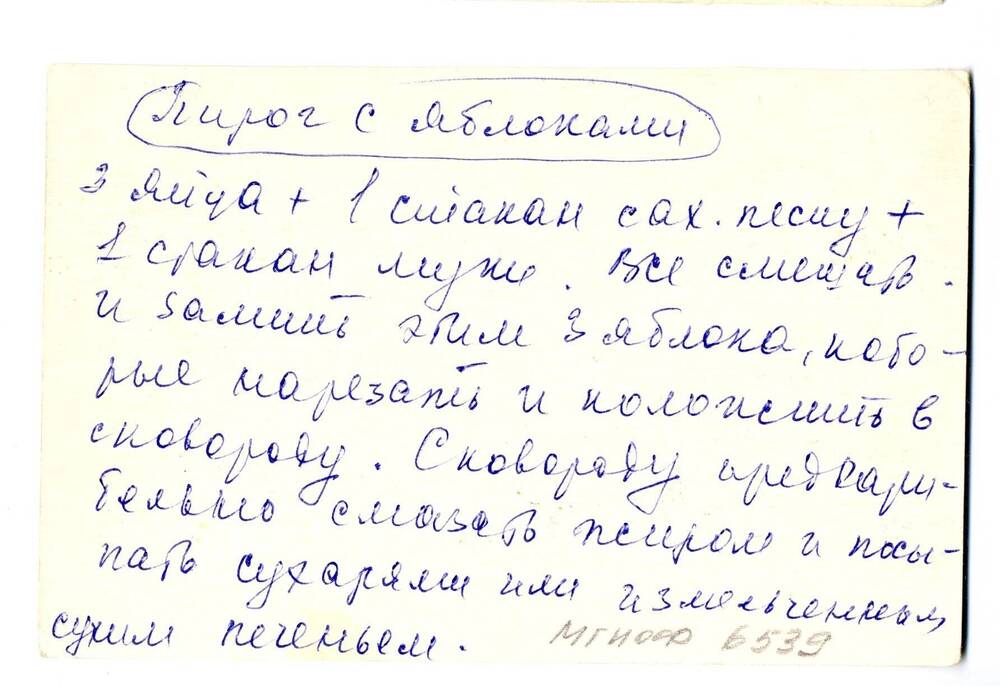 Пирог с яблоками
3 яйца + 1 стакан сах. песку +
1 стакан муки. Все смешать.
и залить этим 3 яблока, кото-
рые нарезать и положить в
сковороду. Сковороду предвари-
тельно смазать жиром и посы-
пать сухарями или измельченным
сухим печеньем.
МГИОФ 6539